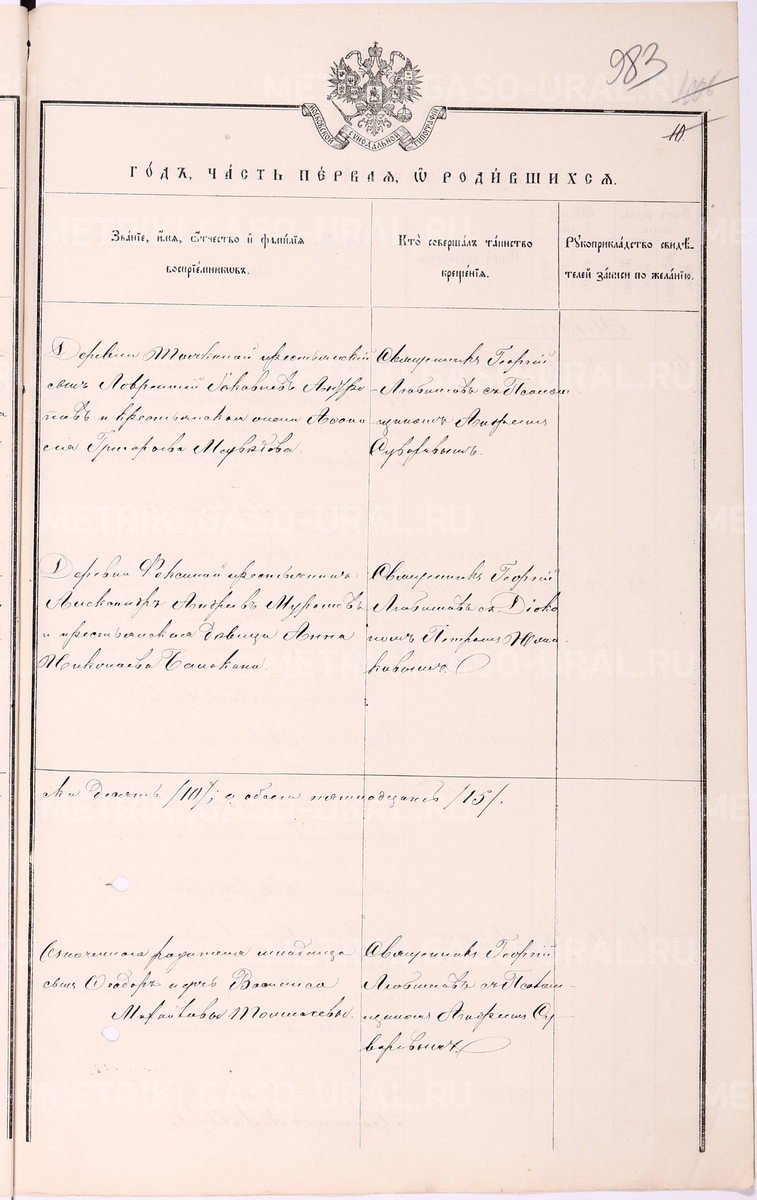 983
10.
МОСКОВСКОЙ СѴНОДАЛЬНОЙ ТИПОГРАФІИ
ГО́ДЪ, ЧА́СТЬ ПЕ́РВАЯ, Ѽ РОДИ́ВШИХСЯ.
Зва́нїе, и́мя, ѻ҆́тчество и҆ фами́лїя
воспрїе́мникѡвъ.
Кто̀ соверша́лъ та́инство
креще́нїя.
Рꙋкоприкла́дство свидѣ́-
телей за́писи по жела́нїю.
Деревни крестьянскій
сынъ Лаврентій Іаковлевъ
и крестьянская жена
Григорьева Медвѣдова.
Священникъ Георгій
Любимовъ съ Псалом
щикомъ Андреемъ
Суворовымъ.
Деревни крестьянинъ
Александръ Андреевъ
и крестьянская дѣвица Анна
Николаева
Священникъ Георгій
Любимовъ съ Діако
номъ Петромъ
ка десять /10/, а обоего пятнадцать /15/.
Означеннаго родителя младенца
сынъ Ѳеодоръ и дочь Васса
Михайловы
Священникъ Георгій
Любимовъ съ Псалом-
щикомъ Андреемъ Су-
воровымъ.
METRIKI.GASO-URAL.RU